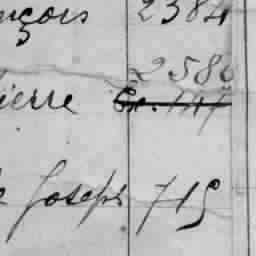 nçois 2384
2586
ierre
Joseph 715